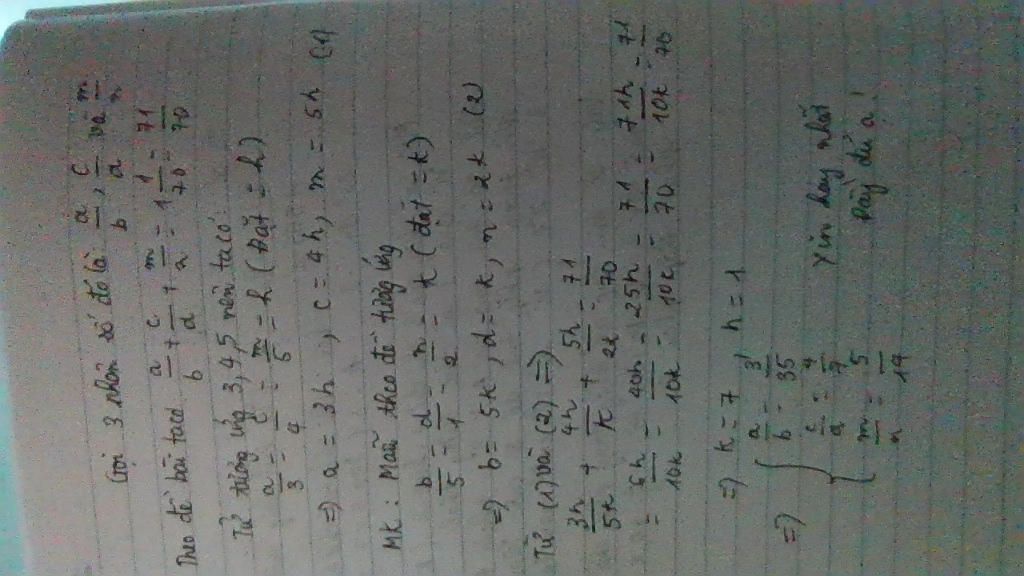 Gọi 3 phân số đó là a/b, c/d và m/n
Theo đề bài ta có a/b + c/d + m/n = 1 1/70 = 71/70
Tử tương ứng 3, 4, 5 nên ta có
a/3 = c/4 = m/5 = h (Đặt = h)
=> a = 3h, c = 4h, m = 5h (1)
MK: Mẫu theo đề tương ứng
b/5 = d/1 = n/2 = k (đặt = k)
=> b = 5k, d = k, n = 2k (2)
Từ (1) và (2) =>
3h/5k + 4h/k + 5h/2k = 71/70
= 6h/10k = 40h/10k = 25h/10k = 71/70 = 71h/10k = 71/70
=> k = 7, h = 1
=> { a/b = 3/35
c/d = 4/7
m/n = 5/14
hãy nhất
Đầy đủ ạ!